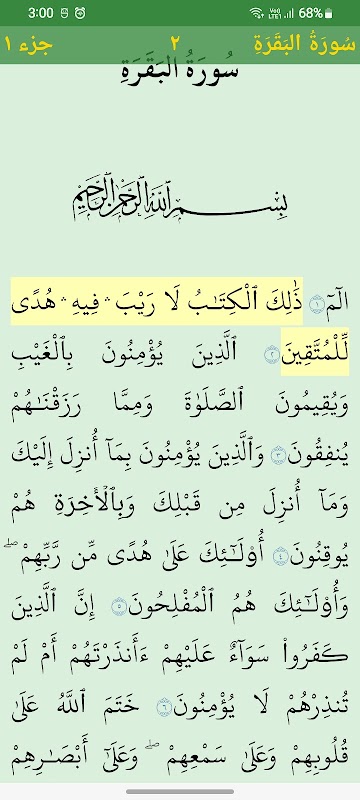 3:00 68%
سُورَةُ البَقَرَةِ ٢ جزء ١
سُورَةُ البَقَرَةِ
بِسْمِ ٱللَّهِ ٱلرَّحْمَٰنِ ٱلرَّحِيمِ
الٓمٓ ١ ذَٰلِكَ ٱلْكِتَٰبُ لَا رَيْبَ ۛ فِيهِ ۛ هُدًى
لِّلْمُتَّقِينَ ٢ ٱلَّذِينَ يُؤْمِنُونَ بِٱلْغَيْبِ
وَيُقِيمُونَ ٱلصَّلَوٰةَ وَمِمَّا رَزَقْنَٰهُمْ
يُنفِقُونَ ٣ وَٱلَّذِينَ يُؤْمِنُونَ بِمَآ أُنزِلَ إِلَيْكَ
وَمَآ أُنزِلَ مِن قَبْلِكَ وَبِٱلْأٓخِرَةِ هُمْ
يُوقِنُونَ ٤ أُو۟لَٰٓئِكَ عَلَىٰ هُدًى مِّن رَّبِّهِمْ ۖ
وَأُو۟لَٰٓئِكَ هُمُ ٱلْمُفْلِحُونَ ٥ إِنَّ ٱلَّذِينَ
كَفَرُوا۟ سَوَآءٌ عَلَيْهِمْ ءَأَنذَرْتَهُمْ أَمْ لَمْ
تُنذِرْهُمْ لَا يُؤْمِنُونَ ٦ خَتَمَ ٱللَّهُ عَلَىٰ
قُلُوبِهِمْ وَعَلَىٰ سَمْعِهِمْ ۖ وَعَلَىٰٓ أَبْصَٰرِهِمْ